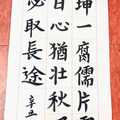 坤一腐儒片
日心猶壯秋
必取長途
辛丑